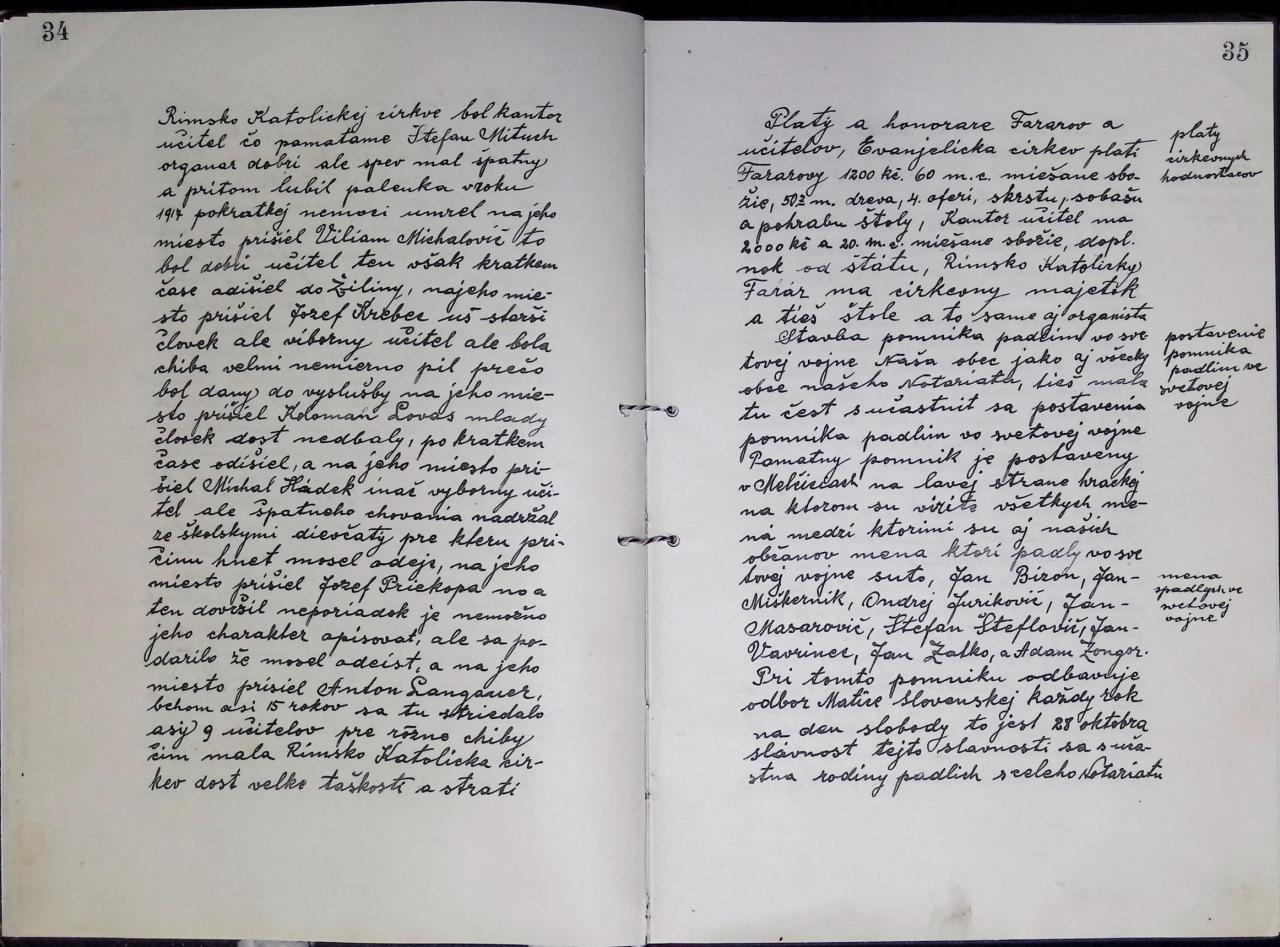 34
Rimsko Katolickej cirkve bol kantor
učitel čo pamatame Štefan Mituch
organar dobri ale spev mal špatny
a pritom lubil palenka vroku
1917 pokratkej nemoci umrel na jeho
miesto prišiel Viliam Michalovič to
bol dobri učitel ten však kratkem
čase adišiel do Žiliny, najeho mie-
sto prišiel Jozef Krebec uš starši
človek ale viborny učitel ale bola
chiba velmi nemierno pil prečo
bol dany do vyslušby na jeho mie-
sto prišiel Koloman Lovas mlady
človek dost nedbaly, po kratkem
čase odišiel, a na jeho miesto pri-
šiel Michal Hádek inač vyborny uči-
tel ale špatneho chovania nadržal
ze školskymi dievčaty pre kteru pri-
činu hnet mosel odejs, na jeho
miesto prišiel Jozef Priekopa no a
ten dovŕšil neporiadok je nemožno
jeho charakter opisovat, ale sa po-
darilo že mosel odeist, a na jeho
miesto prisiel Anton Langauer,
behom asi 15 rokov sa tu striedalo
asy 9 učitelov pre rôzne chiby
čim mala Rimsko Katolicka cir-
kev dost velke taškosti a strati
35
Platy a honorare Fararov a
učitelov, Evanjelicka cirkev plati
Fararovy 1200 kč. 60 m.c. miešane sbo-
žie, 50 m. dreva, 4. oferi, skrstu, sobašu
a pohrabu štoly, Kantor učitel ma
2000 kč a 20. m.c. miešane sbožie, dopl.
nok od štátu, Rimsko Katolicky
Farár ma cirkevny majetok
a tieš štole a to same aj organista
Stavba pomnika padlim vo sve
tovej vojne Naša obec jako aj všecky
obce našeho Notariatu, tieš mala
tu čest sučastnit sa postavenia
pomnika padlim vo svetovej vojne
Pamatny pomnik je postaveny
v Melčiciach na lavej strane hrackej
na ktorom su virite všetkych me-
ná medzi ktorimi su aj našich
občanov mena ktorí padly vo sve
tovej vojne suto, Jan Biron, Jan-
Miškernik, Ondrej Jurikovič, Jan-
Masarovič, Štefan Šteflovič, Jan-
Vavrinec, Jan Zatko, a Adam Zongor.
Pri tomto pomniku odbavuje
odbor Matice Slovenskej každy rok
na den slobody to jest 28 oktobra
slávnost tejto slavnosti sa suča-
stna rodiny padlich sceleho Notariatu
platy
cirkevnych
hodnostarov
postavenie
pomnika
padlim ve
svetovej
vojne
mena
spadlych ve
svetovej
vojne